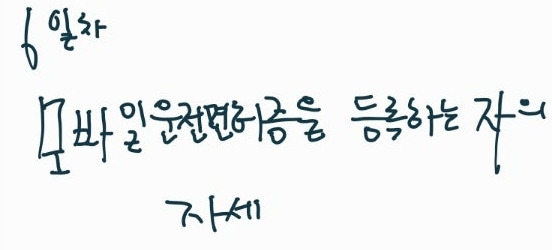 6일차
모바일운전면허증을 등록하는 자의
자세